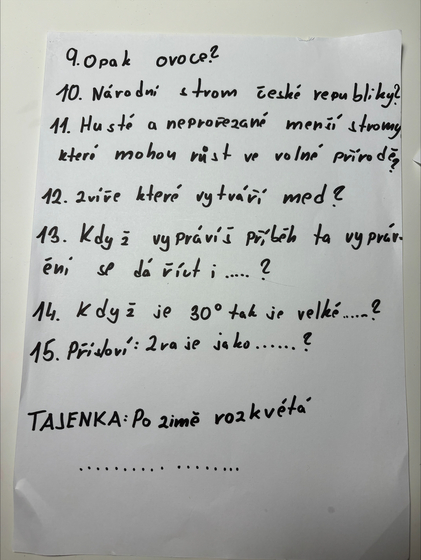 9. Opak ovoce?
10. Národní strom české republiky?
11. Husté a neprořezané menší stromy
které mohou růst ve volné přírodě?
12. zvíře které vytváří med?
13. Když vyprávíš příběh ta vypráv-
ění se dá říct i.....?
14. Když je 30° tak je velké.....?
15. Přísloví: 2va je jako......?
TAJENKA: Po zimě rozkvétá
.......... ........